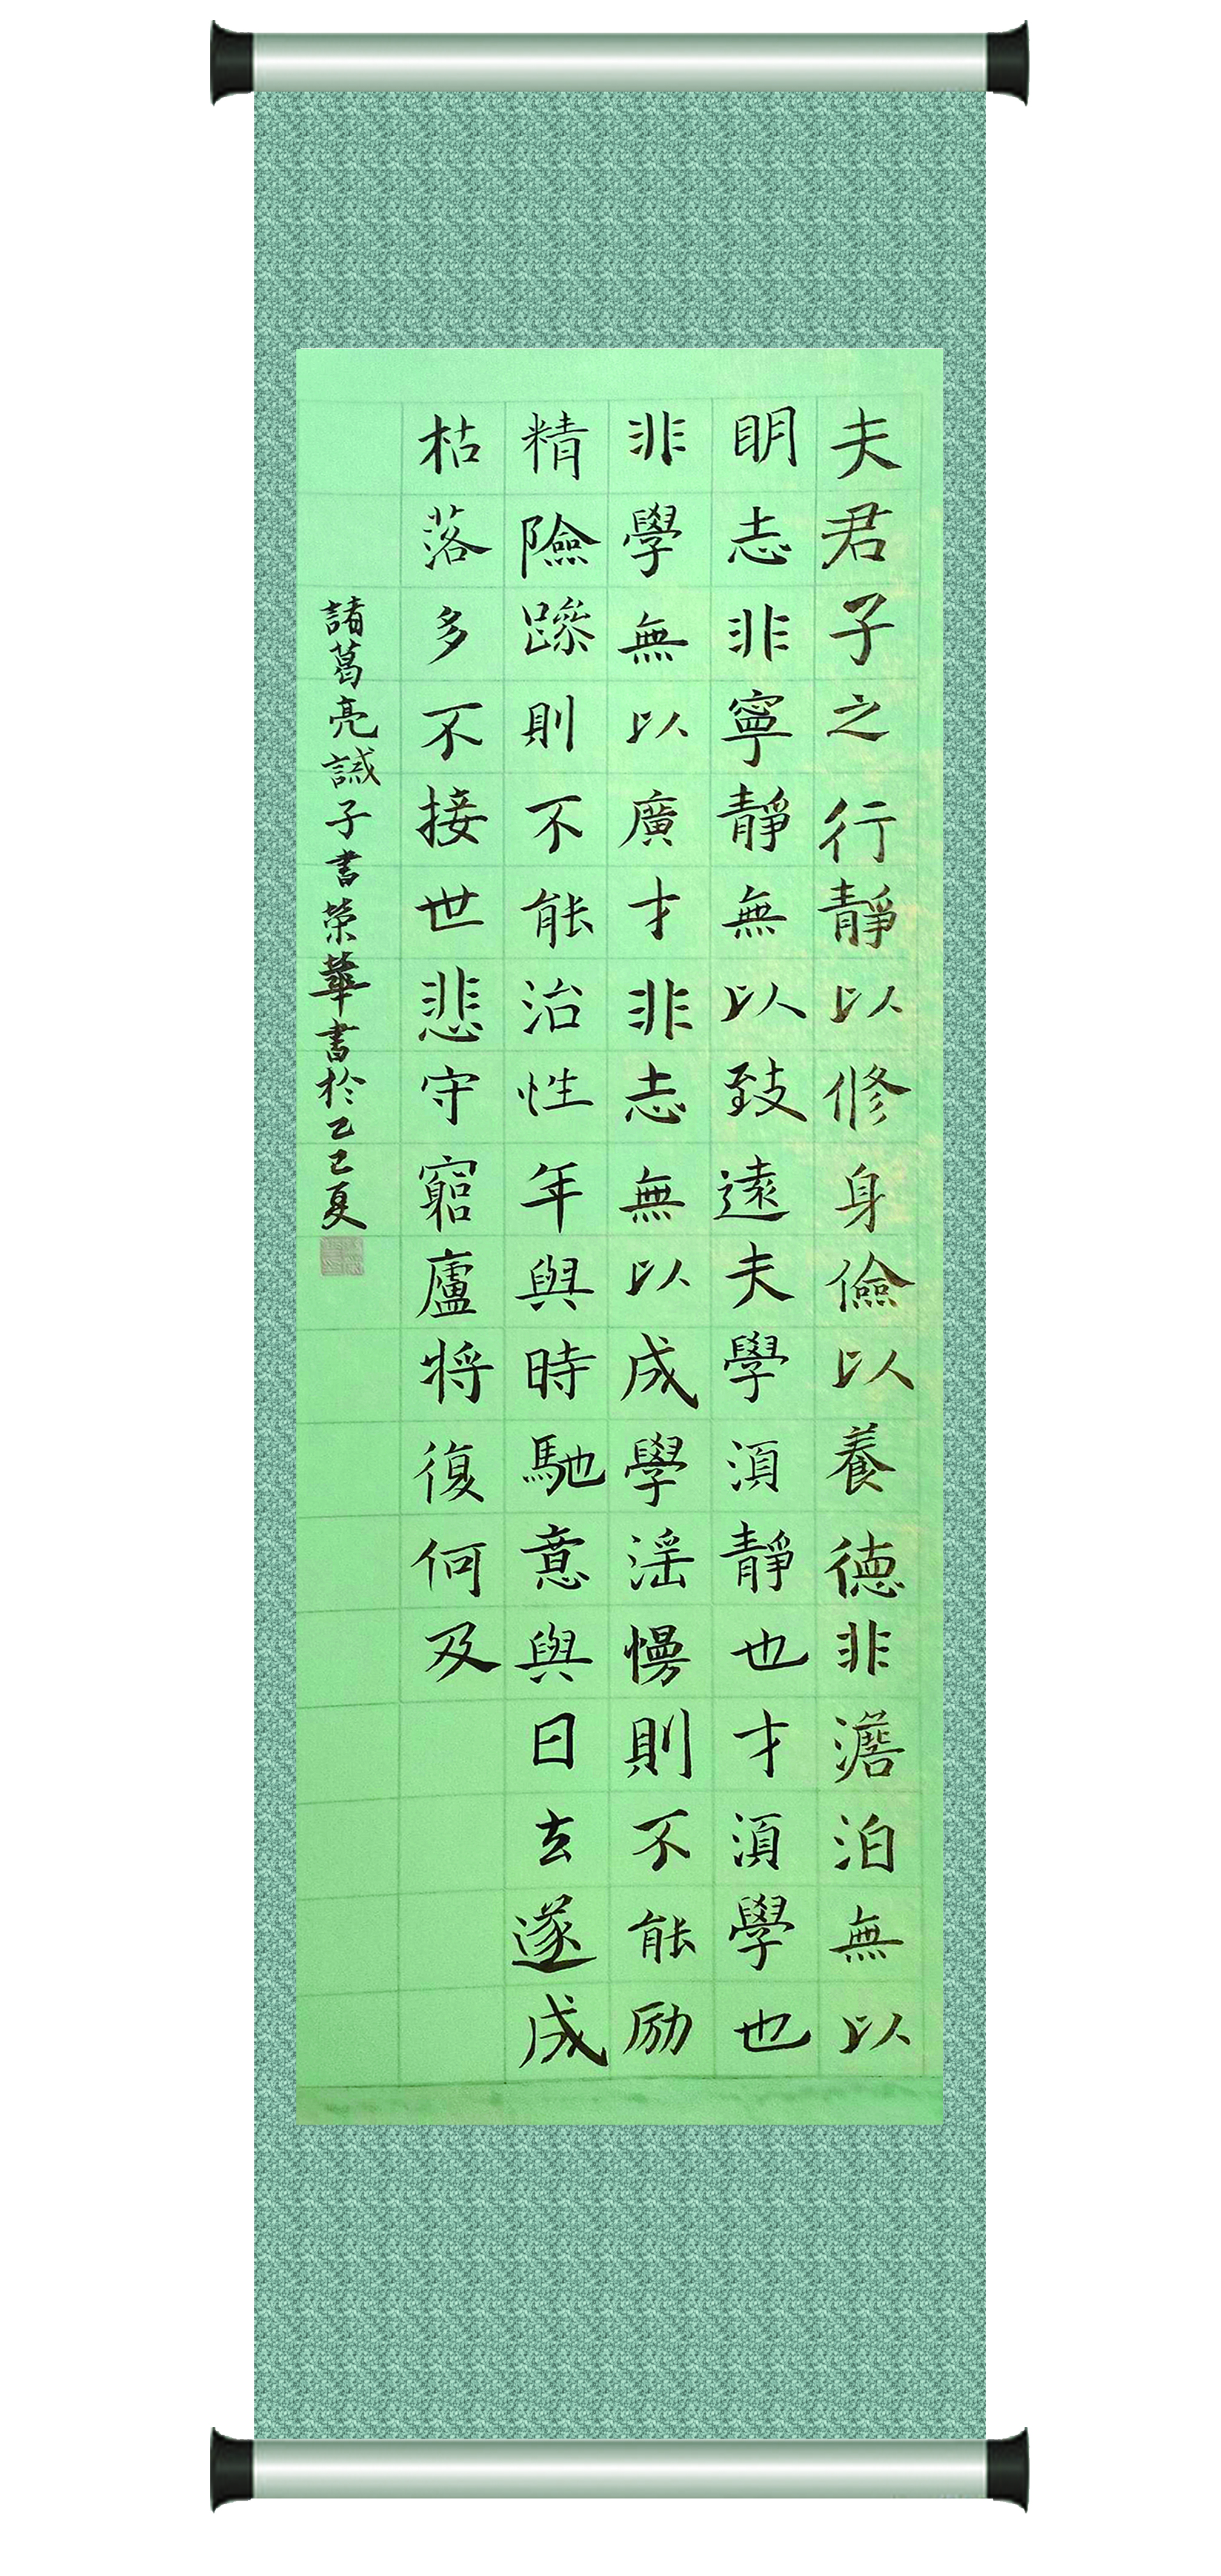 夫君子之行靜以修身儉以養德非澹泊無以
明志非寧靜無以致遠夫學須靜也才須學也
非學無以廣才非志無以成學淫慢則不能励
精險躁則不能治性年與時馳意與日去遂成
枯落多不接世悲守窮廬将復何及
諸葛亮誡子書榮華書於乙巳夏